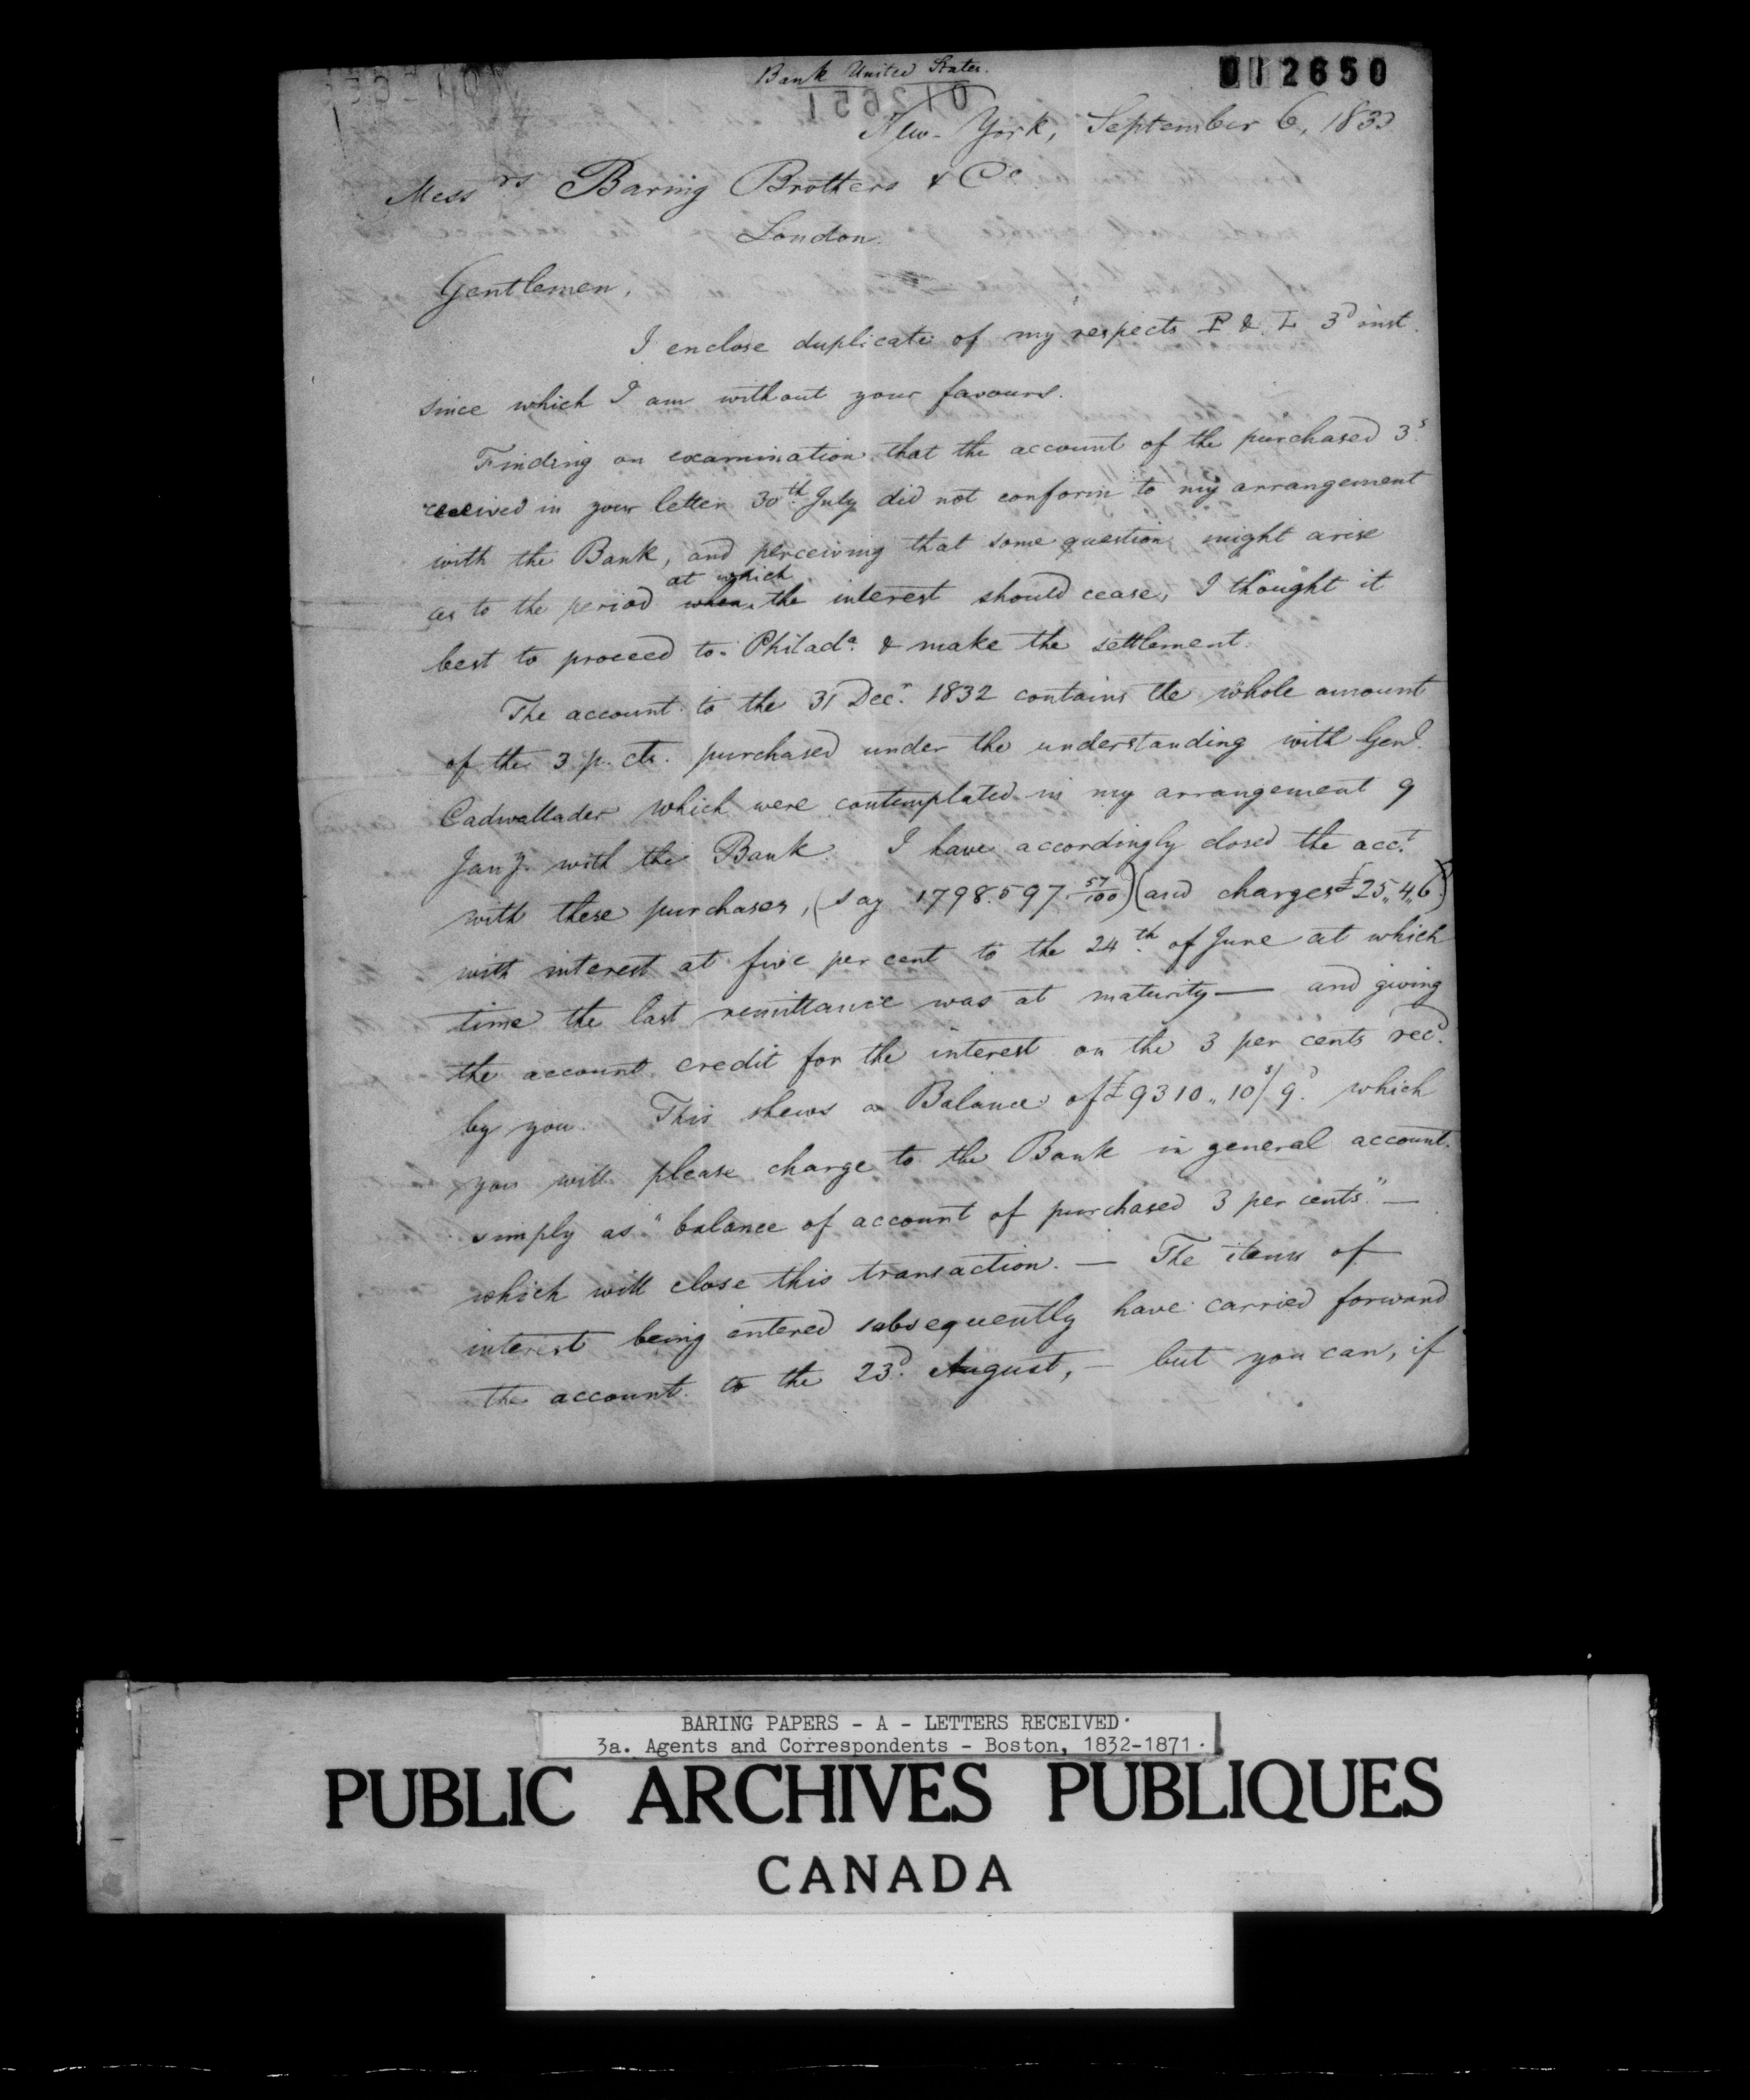 Bank United States.
012650
New-York, September 6, 1833
Messrs Baring Brothers & Co
London.
Gentlemen,
I enclose duplicate of my respects P & L 3d inst.
since which I am without your favours.
Finding on examination that the account of the purchased 3s.
received in your letter 30th July did not conform to my arrangement
with the Bank, and perceiving that some question might arise
at which
as to the period when the interest should cease, I thought it
best to proceed to Philada. & make the settlement.
The account to the 31 Decr. 1832 contains the whole amount
of the 3 p. cts. purchased under the understanding with Genl.
Cadwallader which were contemplated in my arrangement 9
Jany. with the Bank. I have accordingly closed the acct.
with these purchases, (say 1798.597 57/100) (and charges £25,,4,,6)
with interest at five per cent to the 24th of June at which
time the last remittance was at maturity — and giving
the account credit for the interest on the 3 per cents recd.
by you. This shews a Balance of £9310,,10s/9d. which
you will please charge to the Bank in general account.
simply as "balance of account of purchased 3 per cents" —
which will close this transaction. — The items of
interest being entered subsequently have carried forward
the account to the 23d. August, — but you can, if
BARING PAPERS - A - LETTERS RECEIVED.
3a. Agents and Correspondents - Boston, 1832-1871.
PUBLIC ARCHIVES PUBLIQUES
CANADA